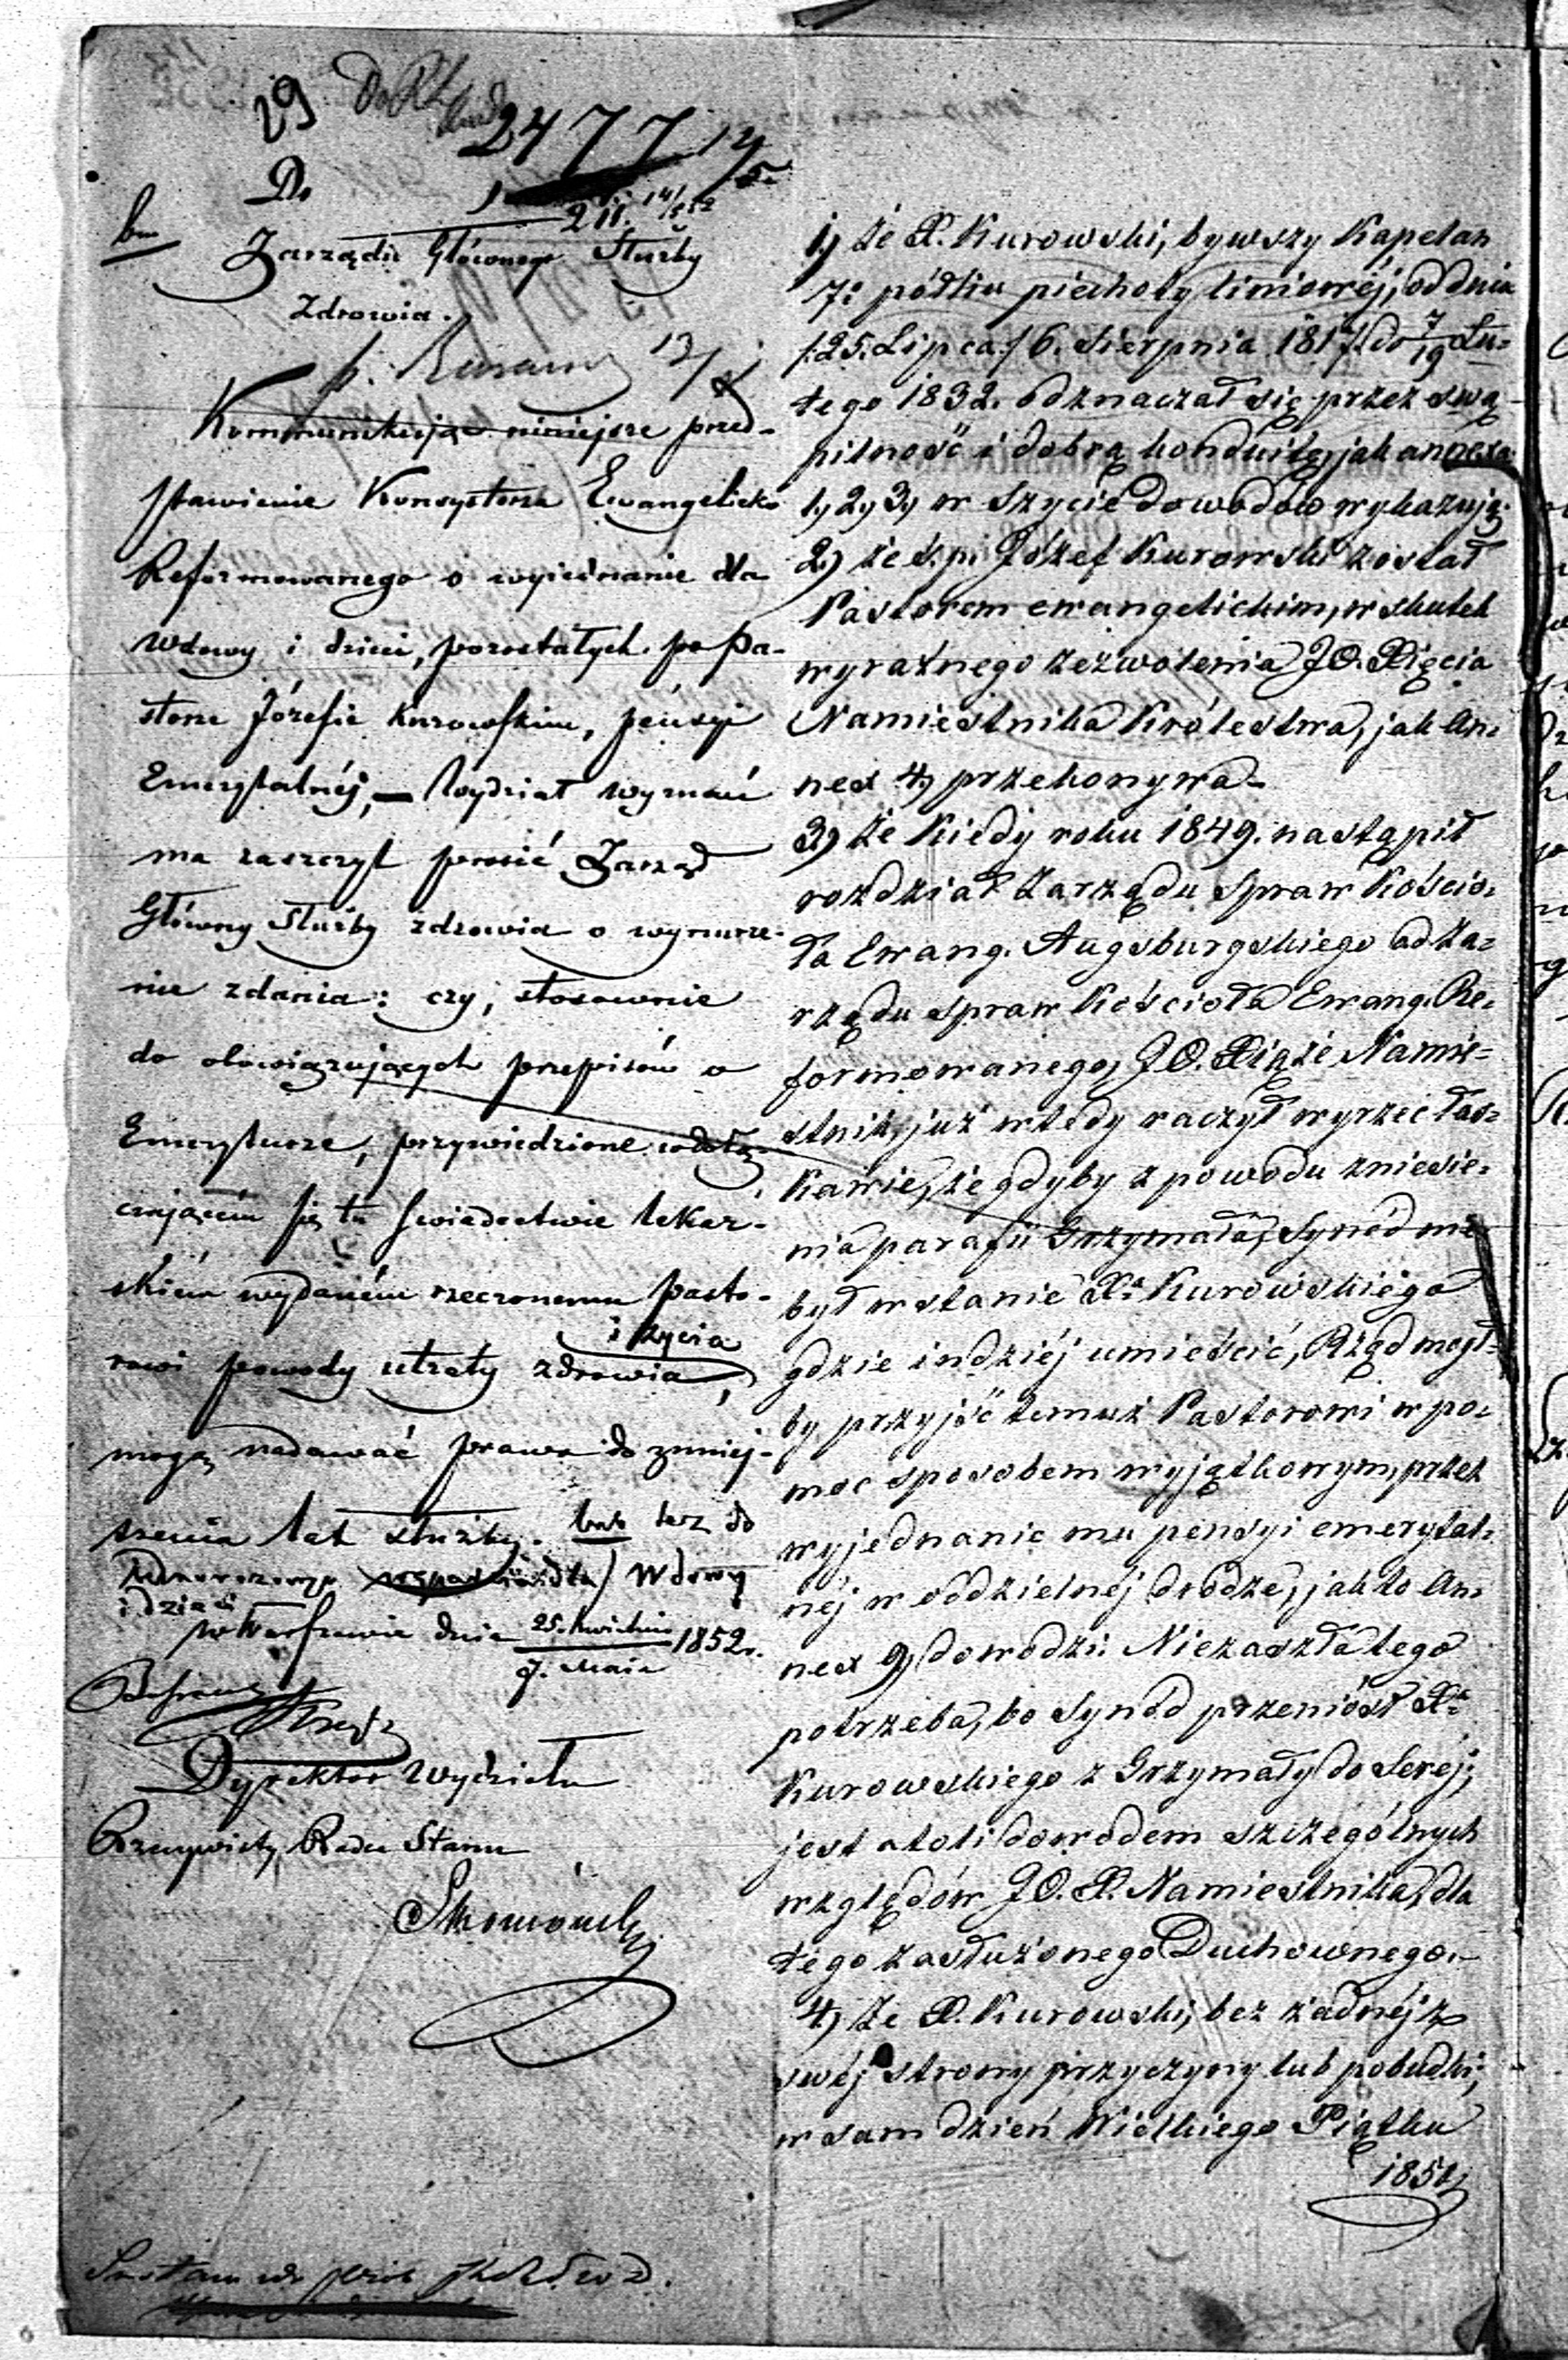 29
2477 12/5
Do
211. 14/5 52
bm
Zarządu Głównego Służby
Zdrowia.
p. 13/5
Kommunikując niniejsze przed-
stawienie Konsystorza Ewangelicko
Reformowanego o wyjednanie dla
wdowy i dzieci, pozostałych po Pa-
storze Józefie Kurowskim, pensyi
Emerytalnéj, — Wydział wyznań
ma zaszczyt prosić Zarząd
Główny Służby zdrowia o wynurze-
nie zdania: czy, stosownie
do obowiązujących przepisów o
Emeryturze, przywiedzione w dołą-
czającém się tu świadectwie lekar-
skiém wydaném rzeczonemu pasto-
i życia
rowi powody utraty zdrowia,
mogą nadawać prawo do zmniej-
szenia lat służby. lub też do
Wdowy
i dzieci
w Warszawie dnia 25. Kwietnia / 7. Maja 1852 r.
Dyrektor Wydziału
Rzeczywisty Radca Stanu
1) Że X. Kurowski, bywszy Kapelan
7: półku piechoty liniowéj, od dnia
/:25. Lipca:/ 6. Sierpnia 1817. do 7/19 Lu-
tego 1832. odznaczał się przez swą
pilność i dobrą konduitę, jak annexa
1, 2, 3, w Szycie dowodów wykazują.
2) Że ś. p. Józef Kurowski został
Pastorem ewangelickim, w skutek
wyraźnego zezwolenia J.O. Xięcia
Namiestnika Królestwa, jak An-
nex 4, przekonywa.
3) Że kiedy roku 1849. nastąpił
rozdział Zarządu Spraw Kościo-
ła Ewang. Augsburgskiego od Za-
rządu Spraw Kościoła Ewang. Re-
formowanego, J.O. Xiąże Namie-
stnik, już wtedy raczył wyrzec łas-
kawie, że gdyby z powodu zniesie-
nia parafii Grzymała, Synod nie
był w stanie Xa Kurowskiego
gdzie indziéj umieścić, Rząd mógł-
by przyjść temuż Pastorowi w po-
moc sposobem wyjątkowym, przez
wyjednanie mu pensyi emerytal-
néj w oddzielnéj drodze, jak to An-
nex 9, dowodzi. Niezaszła tego
potrzeba, bo Synod przeniósł Xa
Kurowskiego z Grzymały do Serej;
jest atoli dowodem szczególnych
względów J.O.X. Namiestnika, dla
tego zasłużonego Duchownego.
4) Że X. Kurowski, bez żadnéj z
swéj strony przyczyny lub pobudki,
w sam dzień Wielkiego Piątku
1851,